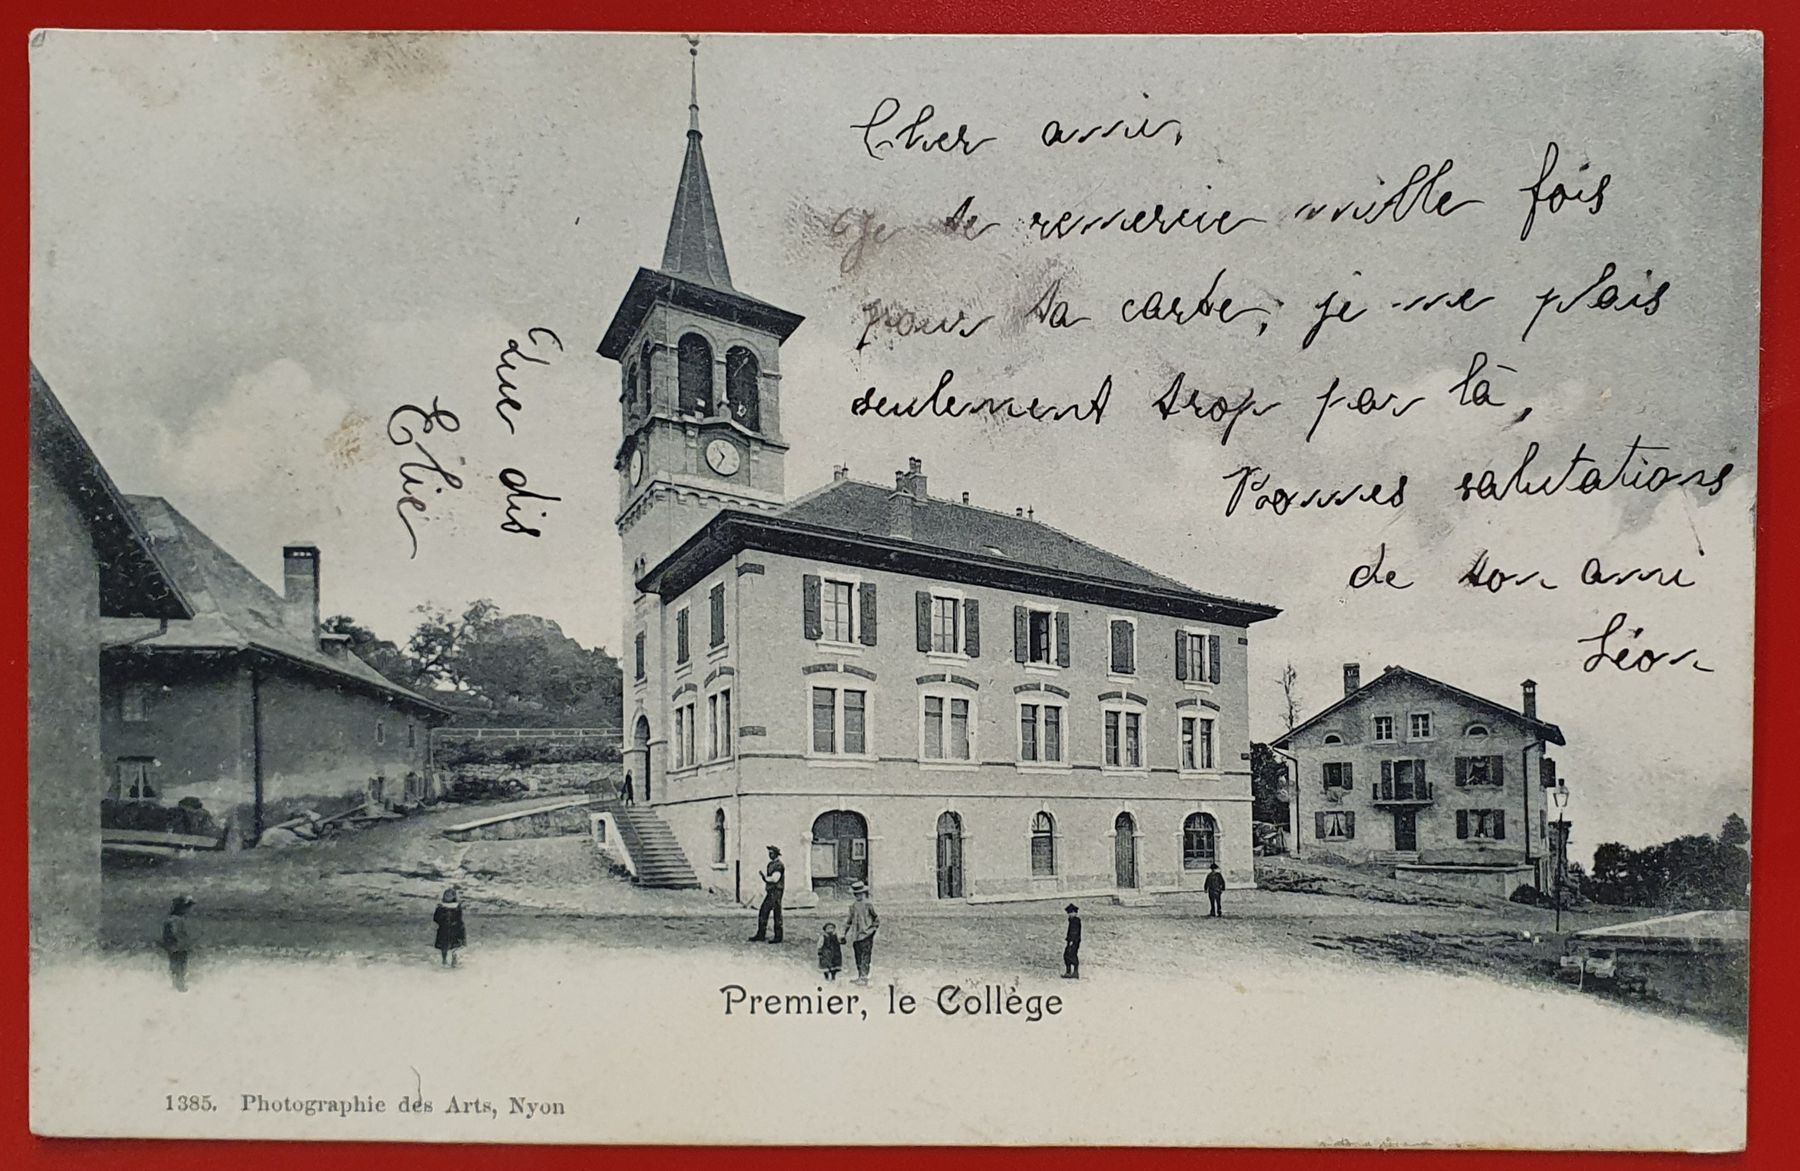 Cher ami,
Je te remercie mille fois
pour ta carte, je me plais
seulement trop par là,
Bonnes salutations
de ton ami
Léon
Que dis
Elie
Premier, le Collège
1385. Photographie des Arts, Nyon